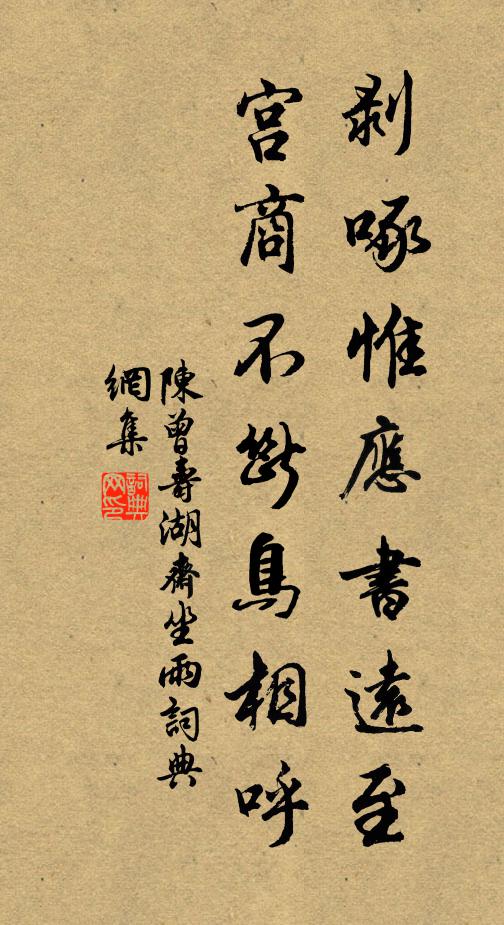 剝啄惟應書遠至
宮商不斷鳥相呼
陳曾壽湖齋坐雨詞典
網集
詞典
网印